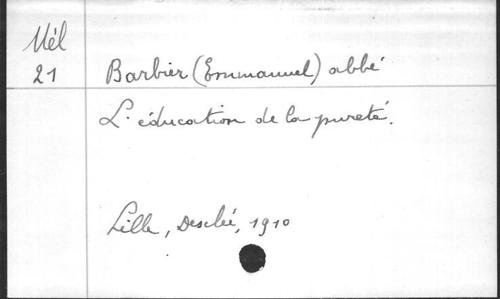 Mél
21
Barbier (Emmanuel) abbé
L'éducation de la pureté.
Lille, Desclée, 1910